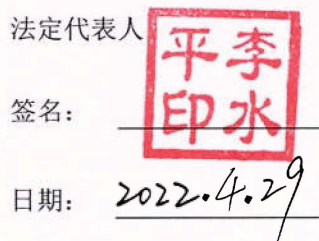 法定代表人
李水平印
签名：
日期：2022.4.29